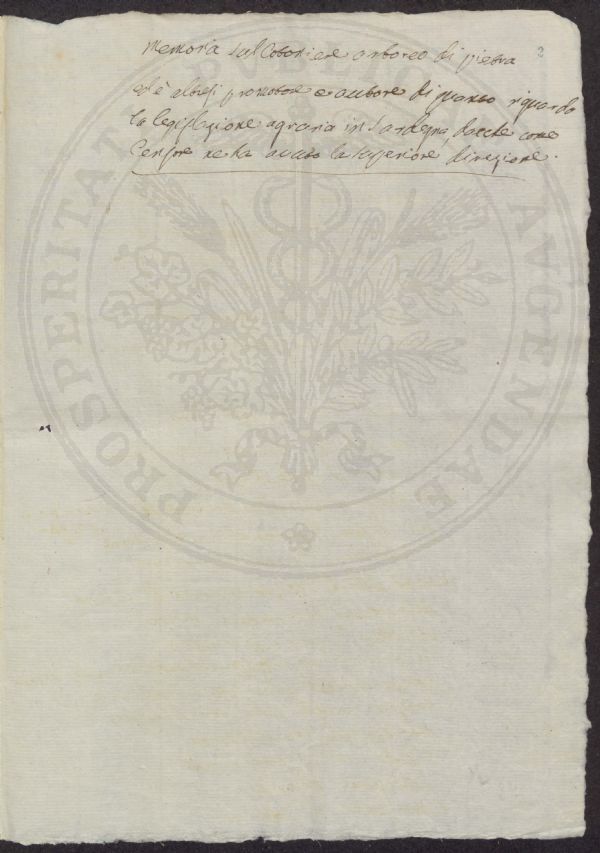 2
Memoria sul Cotoniere arboreo di pietra
ed è altresì promotore e autore di quanto riguarda
la legislazione agraria in Sardegna, dacché come
Censore ne ha avuto la superiore direzione.
PROSPERITATI PUBLICAE AUGENDAE